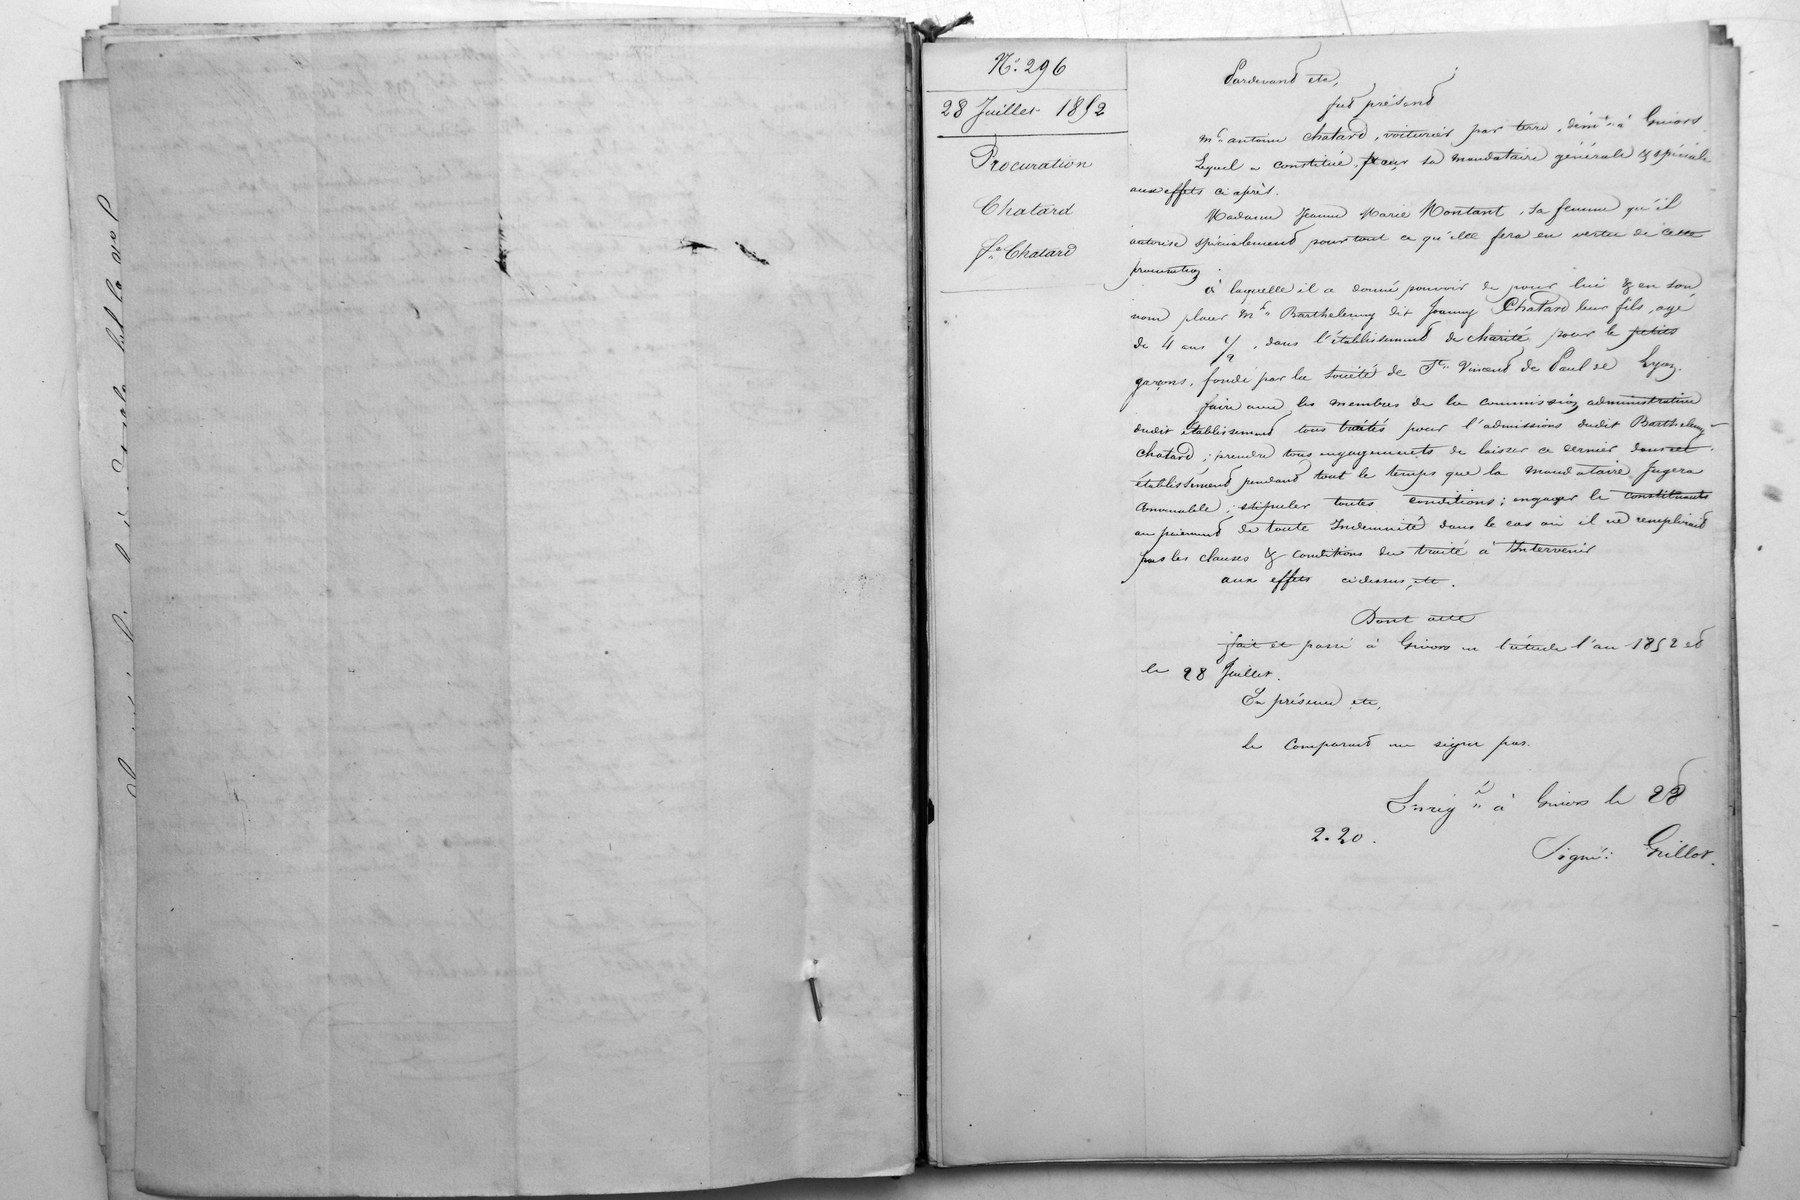 N.° 296
28 Juillet 1852
Procuration
Chatard
fe Chatard
Pardevant etc,
fut présent
mr. antoine Chatard, voiturier par terre, demt. à Givors
Lequel a constitué pour sa mandataire générale & spéciale
aux effets ci après.
Madame Jeanne Marie Montant, sa femme qu'il
autorise spécialement pour tout ce qu'elle fera en vertu de cette
procuration.
à laquelle il a donné pouvoir de pour lui & en son
nom placer mr. Barthelemy dit Joanny Chatard leur fils, agé
de 4 ans 1/2, dans l'établissement de charité pour le petits
garçons, fondé par la Société de St. Vincent de Paul de Lyon.
faire avec les membres de la commission administrative
dudit établissement tous traités pour l'admissions dudit Barthelemy
Chatard; prendre tous engagements de laisser ce dernier dans cet
établissement pendant tout le temps que la mandataire Jugera
Convenable; stipuler toutes conditions; engager le constituants
au paiement de toute Indemnité dans le cas où il ne remplirait
pas les clauses & conditions du traité à Intervenir
aux effets cidessus, etc.
Dont acte
fait et passé à Givors en l'étude l'an 1852 et
le 28 Juillet.
En présence etc,
le Comparant ne signe pas.
Enregr. à Givors le 28
2.20.
Signé: Grillot.